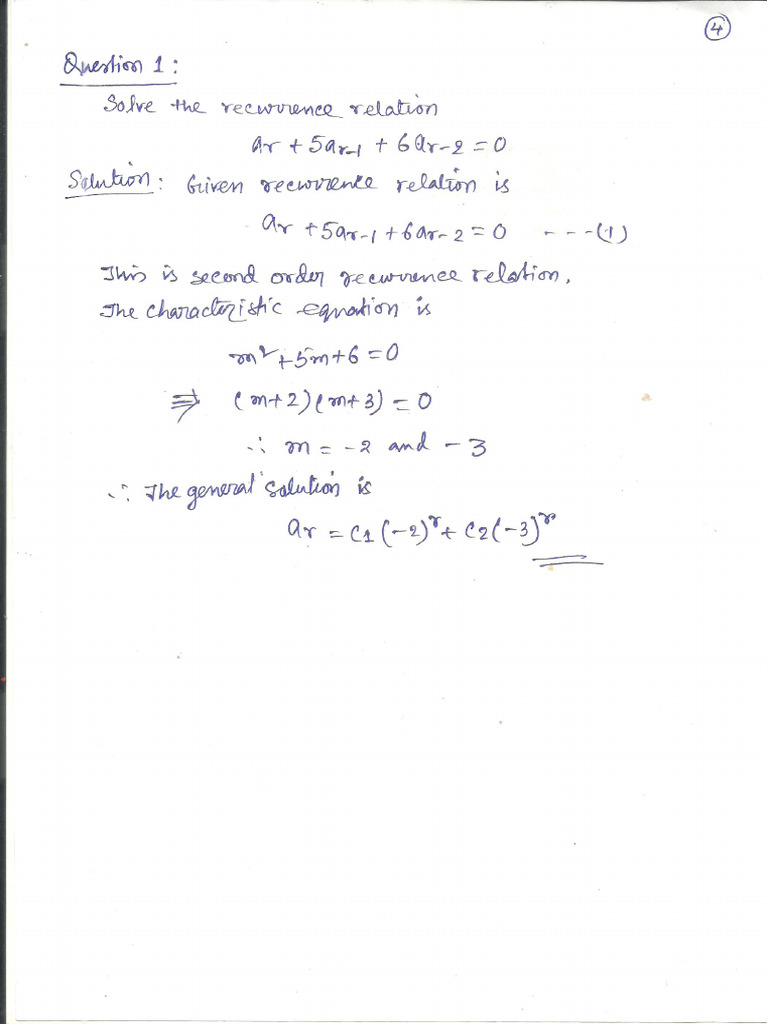 ④
Question 1:
Solve the recurrence relation
ar + 5ar-1 + 6ar-2 = 0
Solution: Given recurrence relation is
ar + 5ar-1 + 6ar-2 = 0 ---(1)
This is second order recurrence relation.
The characteristic equation is
m² + 5m + 6 = 0
⇒ (m+2)(m+3) = 0
∴ m = -2 and -3
∴ The general solution is
ar = C1(-2)^r + C2(-3)^r